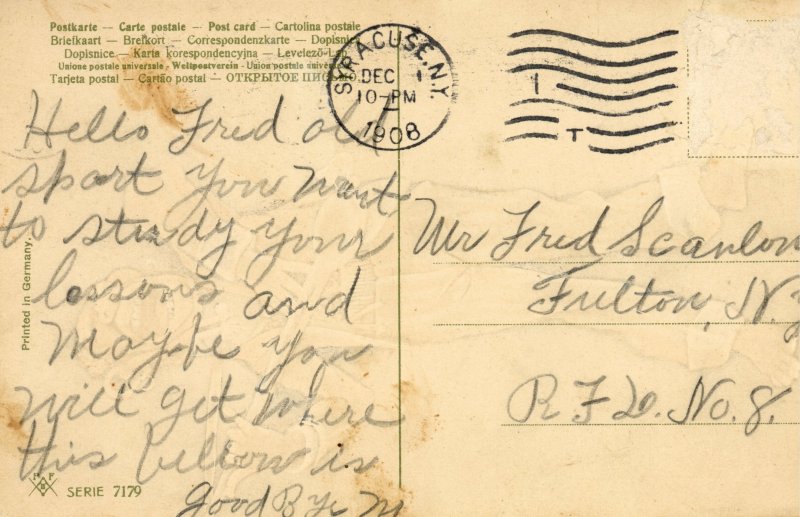 Postkarte — Carte postale — Post card — Cartolina postale
Briefkaart — Brefkort — Correspondenzkarte — Dopisni
Dopisnice — Karta korespondencyjna — Levelező-Lap
Unione postale universale - Weltpostverein - Union postale univer
Tarjeta postal — Cartão postal — ОТКРЫТОЕ ПИСЬМО
SYRACUSE, N.Y.
DEC 1
10-PM
1908
1
T
Hello Fred old
sport You want
to study your
lessons and
Maybe you
will get where
this fellow is
Good Bye M
Mr Fred Scanlon
Fulton, N.Y
R. F. D. No. 8.
Printed in Germany.
SERIE 7179